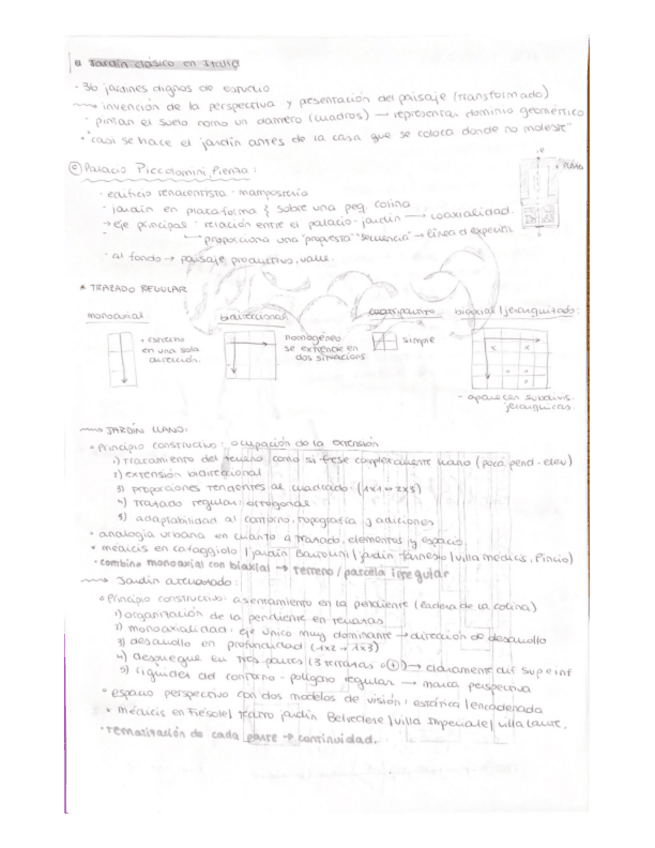 Jardín clásico en Italia
- 36 jardines dignos de estudio
invención de la perspectiva y presentación del paisaje (transformado)
- pintan el suelo como un damero (cuadros) → representar dominio geométrico
• "casi se hace el jardín antes de la casa que se coloca donde no moleste"
Palacio Piccolomini, Pienza:
- edificio renacentista - mampostería
- jardín en plataforma { sobre una peq. colina
→ eje principal: relación entre el palacio-jardín → coaxialidad.
proporciona una "propuesta" "secuencia" → línea
- al fondo → paisaje productivo, valle.
* TRAZADO REGULAR
monoaxial
bidireccional
biaxial / jerarquizado:
• extremo en una sola dirección.
homogéneo se extiende en dos situaciones
simple
- aparecen subdivis. jerárquicas.
JARDÍN LLANO:
• Principio constructivo: ocupación de la extensión
1) tratamiento del terreno como si fuese completamente llano (poca pend - elev)
2) extensión bidireccional
3) proporciones tendentes al cuadrado (1x1 → 2x3)
4) trazado regular: ortogonal
5) adaptabilidad al contorno, topografía y adiciones
• analogía urbana en cuanto a trazado, elementos y espacio
• médicis en cafaggiolo / jardín / jardín farnesio / villa médicis, Pincio)
• combina monoaxial con biaxial → terreno / parcela irregular
Jardín aterrazado:
• Principio constructivo: asentamiento en la pendiente (ladera de la colina)
1) organización de la pendiente en terrazas
2) monoaxialidad: eje único muy dominante → dirección de desarrollo
3) desarrollo en profundidad (1x2 → 1x3)
4) despliegue en tres partes (3 terrazas o ⊕) → claramente dif sup e inf
5) rigidez del contorno - polígono regular → marca perspectiva
• espacio perspectivo con dos modelos de visión: estática / encadenada
• médicis en Fiésole / teatro jardín Belvedere / villa Imperiale / villa Lante.
• tematización de cada parte → continuidad.